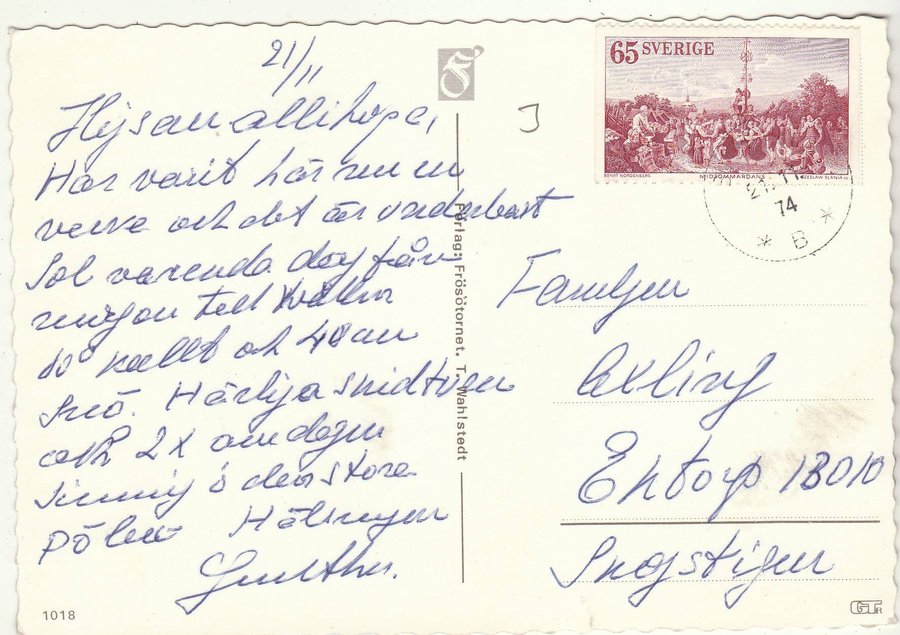 21/11
Hejsan allihopa,
Har varit här nu en
vecka och det är underbart
Sol varenda dag från
morgon till kväll
10° kallt och 40 cm
Snö. Härliga skidturer
och 2 x om dagen
i den stora
Hälsningar
Gunther.
Förlag: Frösötornet. T. Wahlstedt
1018
65 SVERIGE
BENGT NORDENBERG MIDSOMMARDANS CZESLAW SLANIA SC.
21.11.
74
* B *
Familjen
Axling
Ektorp 13010
GT